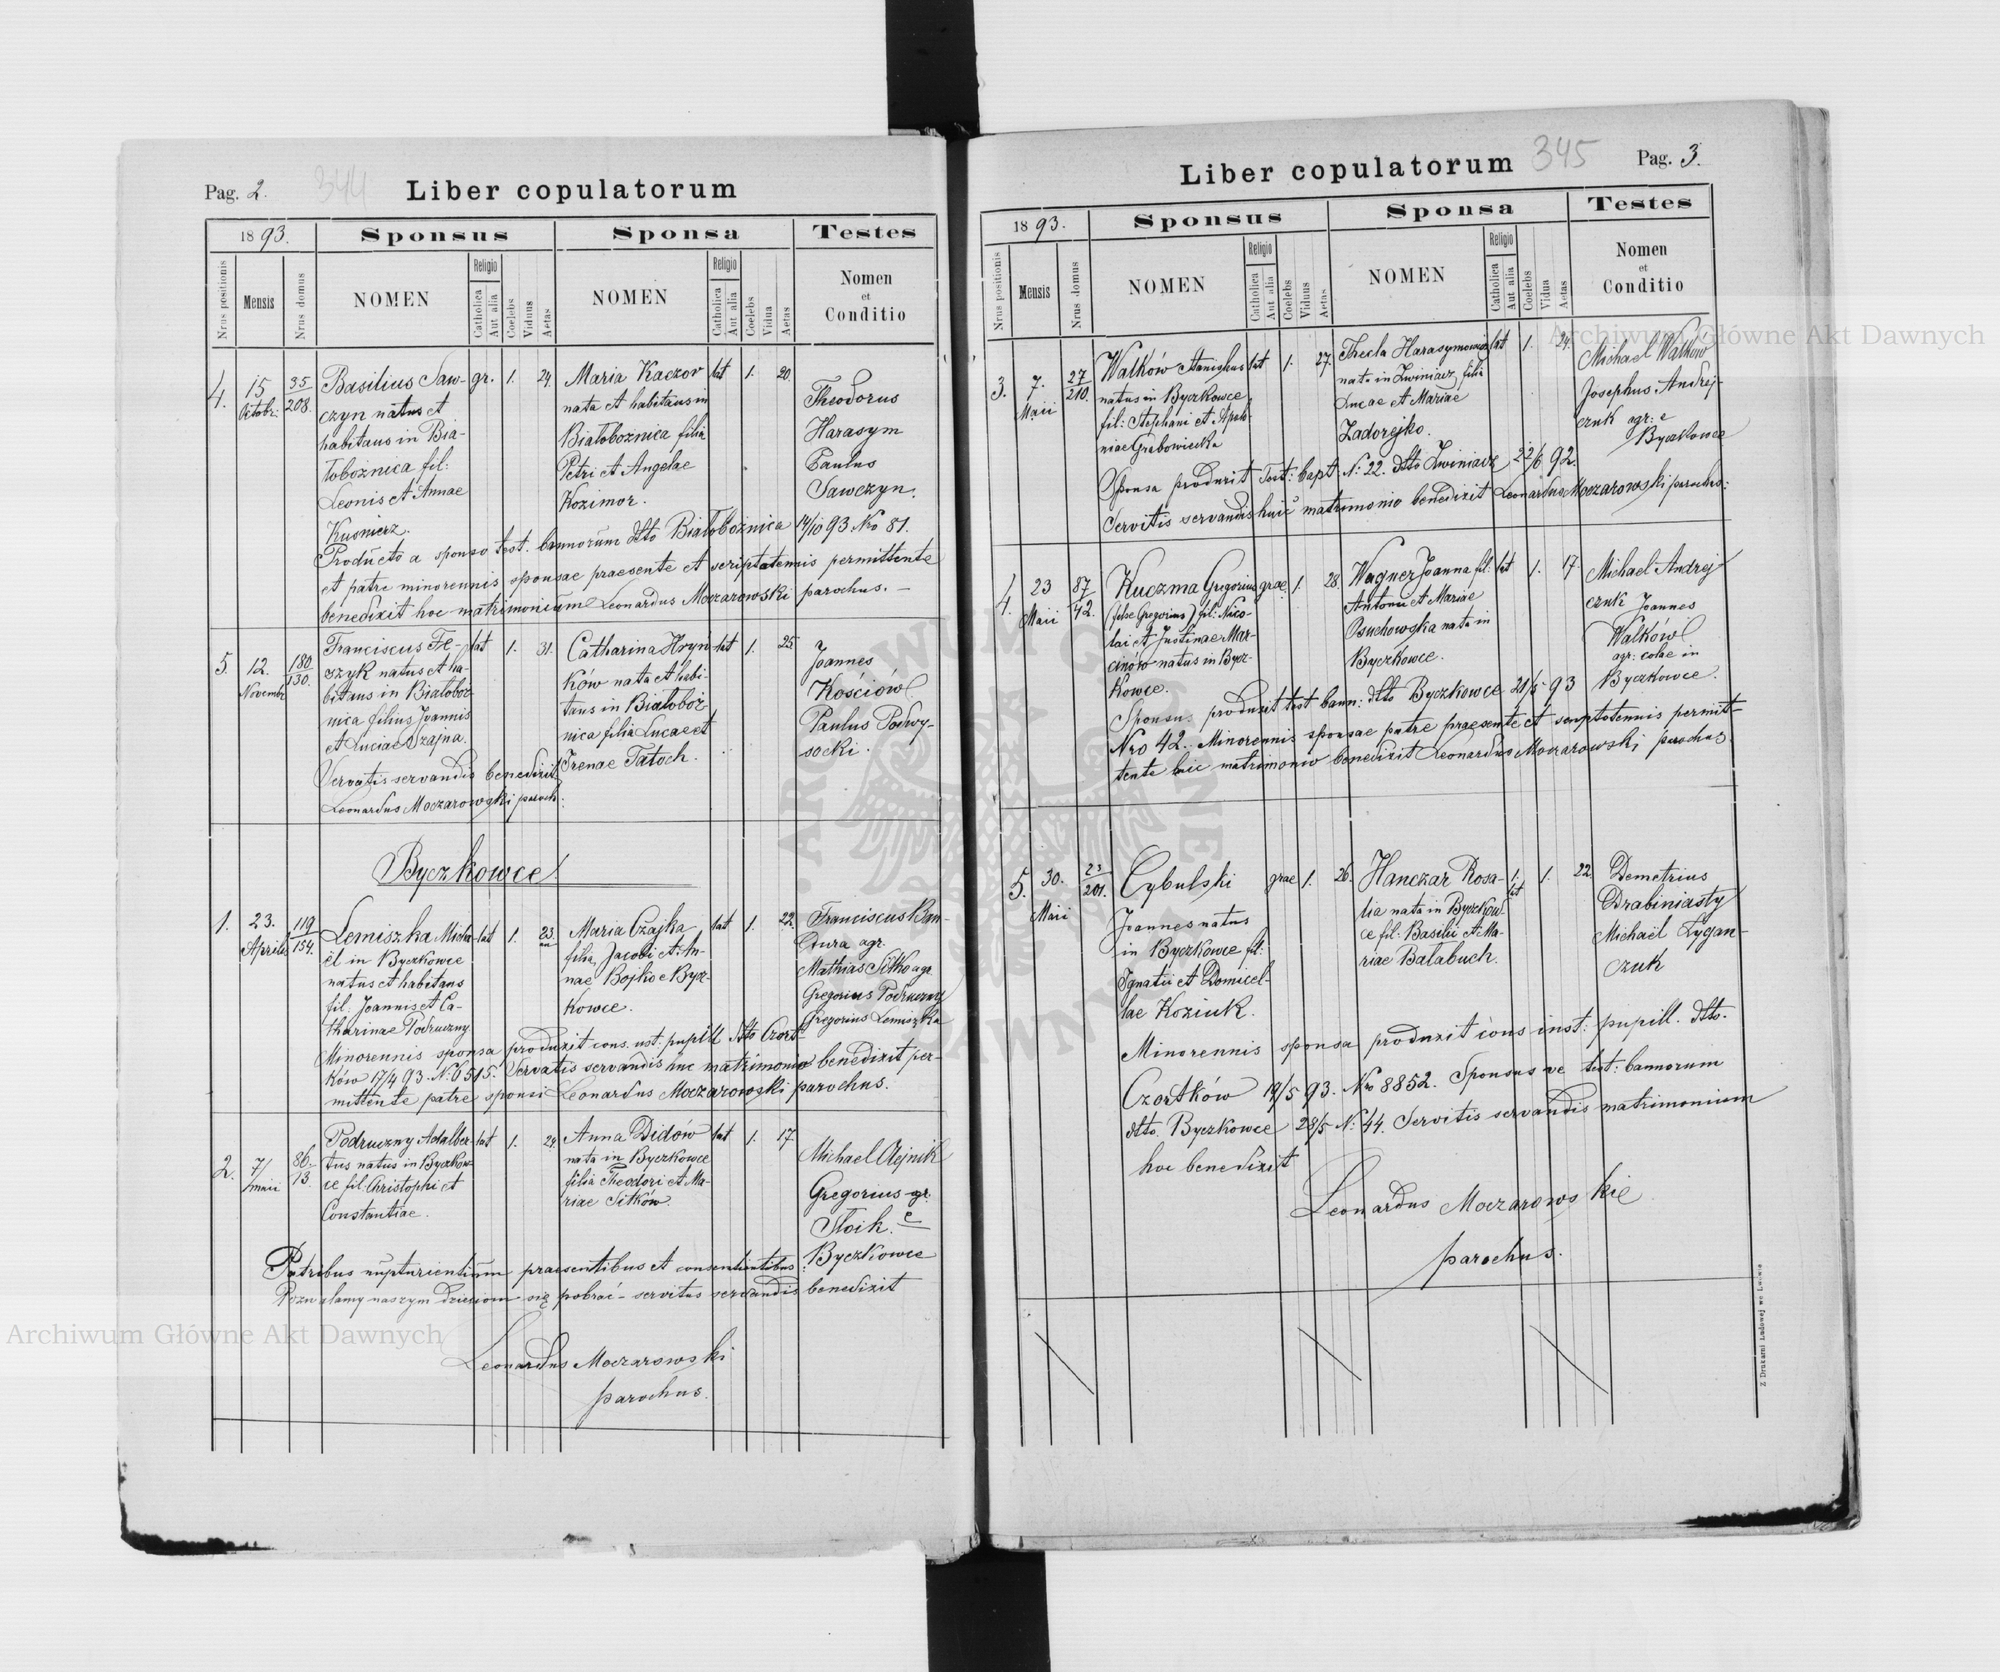 Pag. 2.
344
Liber copulatorum
1893.
Sponsus
Sponsa
Testes
Nrus positionis
Mensis
Nrus domus
NOMEN
Religio
Catholica
Aut alia
Coelebs
Viduus
Aetas
NOMEN
Religio
Catholica
Aut alia
Coelebs
Vidua
Aetas
Nomen
et
Conditio
4.
15
Octobr:
35
208.
Basilius Saw-
czyn natus et
habitans in Bia-
łobożnica fil:
Leonis et Annae
Kusnierz.
gr.
1.
24.
Maria Kaczor
nata et habitans in
Białobożnica filia
Petri et Angelae
Kozimor.
lat
1.
20.
Theodorus
Harasym
Paulus
Sawczyn.
Producto a sponso test. bannorum dtto Białobożnica 14/10 93 Nro 81.
et patre minorennis sponsae praesente et scriptotenus permittente
benedixit hoc matrimonium Leonardus Moczarowski parochus.
5.
12.
Novembr
180
130.
Franciscus Fe-
szyk natus et ha-
bitans in Białoboż
nica filius Joannis
et Luciae Szajna.
lat
1.
31.
Catharina Hryń-
ków nata et habi-
tans in Białoboż
nica filia Lucae et
Irenae Tatoch.
lat
1.
25.
Joannes
Kościów
Paulus Podwy-
socki.
Servatis servandis benedixit
Leonardus Moczarowski paroch:
Byczkowce
1.
23.
Aprilis
119
154.
Lemiszka Micha-
ël in Byczkowce
natus et habitans
fil. Joannis et Ca-
tharinae Podruczny
lat
1.
23.
Maria Czajka
filia Jacobi et An-
nae Bojko e Bycz-
kowce.
lat
1.
22.
Franciscus Ban-
dura agr.
Mathias Sitko agr.
Gregorius Podruczny
Gregorius Lemiszka
Minorennis sponsa produxit cons. ust: pupill dtto Czort-
ków 17/4 93. N. 6515. Servatis servandis huic matrimonio benedixit per-
mittente patre sponsi Leonardus Moczarowski parochus.
2.
7/
Maii
86.
13.
Podruczny Adalber
tus natus in Byczkow
ce fil. Christophi et
Constantiae.
lat
1.
24.
Anna Didów
nata in Byczkowce
filia Theodori et Ma-
riae Sitków.
lat
1.
17.
Michael Olejnik
Gregorius gr.
Słoik. e
Byczkowce
Patribus nupturientium praesentibus et consentientibus
Pozwalamy naszym dzieciom się pobrać - servitus servandis benedixit
Leonardus Moczarowski
parochus.
Liber copulatorum
345
Pag. 3.
1893.
Sponsus
Sponsa
Testes
Nrus positionis
Mensis
Nrus domus
NOMEN
Religio
Catholica
Aut alia
Coelebs
Viduus
Aetas
NOMEN
Religio
Catholica
Aut alia
Coelebs
Vidua
Aetas
Nomen
et
Conditio
3.
7.
Maii
27
210.
Walków Stanislaus
natus in Byczkowce
fil: Stephani et Apolo-
niae Grabowiecka
lat
1.
27.
Thecla Harasymowicz
nata in Zwiniacz filia
Lucae et Mariae
Zadorejko.
lat
1.
24.
Michael Walków
Josephus Andrej-
czuk agr: e
Byczkowce
Sponsa produxit Test: bapt. N: 22. dtto Zwiniacz 22/6 92.
Servitis servandis huic matrimonio benedixit Leonardus Moczarowski parochus:
4.
23
Maii
87
42.
Kuczma Gregorius
(false Gregorius) fil: Nico-
lai et Justinae Mar-
cinów natus in Bycz-
kowce.
grae
1.
28.
Wagner Joanna fil:
Antonii et Mariae
Osuchowska nata in
Byczkowce.
lat
1.
17.
Michael Andrej
czuk Joannes
Walków
agr: colae in
Byczkowce.
Sponsu. produxit test bann: dtto Byczkowce 21/5 93
Nro 42. Minorennis sponsae patre praesente et scriptotennis permit-
tente huic matrimonio benedixit Leonardus Moczarowski parochus.
5.
30.
Maii
23
201.
Cybulski
Joannes natus
in Byczkowce fil:
Ignatii et Domicel-
lae Koziuk.
grae
1.
26.
Hanczar Rosa-
lia nata in Byczkow-
ce fil: Basilii et Ma-
riae Bałabuch.
1.
lat
1.
22.
Demetrius
Drabiniasty
Michaël Cygan-
czuk
Minorennis sponsa produxit cons inst: pupill. dtto.
Czortków 19/5 93. Nro 8852. Sponsus ve test: bannorum
dtto. Byczkowce 28/5 N: 44. Servitis servandis matrimonium
hoc benedixit
Leonardus Moczarowskie
parochus.
Z Drukarni Ludowej we Lwowie
Archiwum Główne Akt Dawnych
Archiwum Główne Akt Dawnych